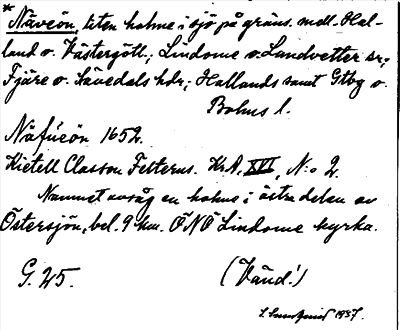 * Näveön, liten holme i sjö på gräns. mell. Hal-
land o. Västergötl.; Lindome o. Landvetter sr;
Fjäre o. Sävedals hdr; Hallands samt Gtbg o.
Bohus l.
Näfueön 1652.
Kietell Classon Felterus. KrA, XVI, N:o 2.
Namnet avsåg en holme i östra delen av
Östersjön, bel. 9 km. ÖNÖ Lindome kyrka.
G. 25. (Vänd!)
1937.